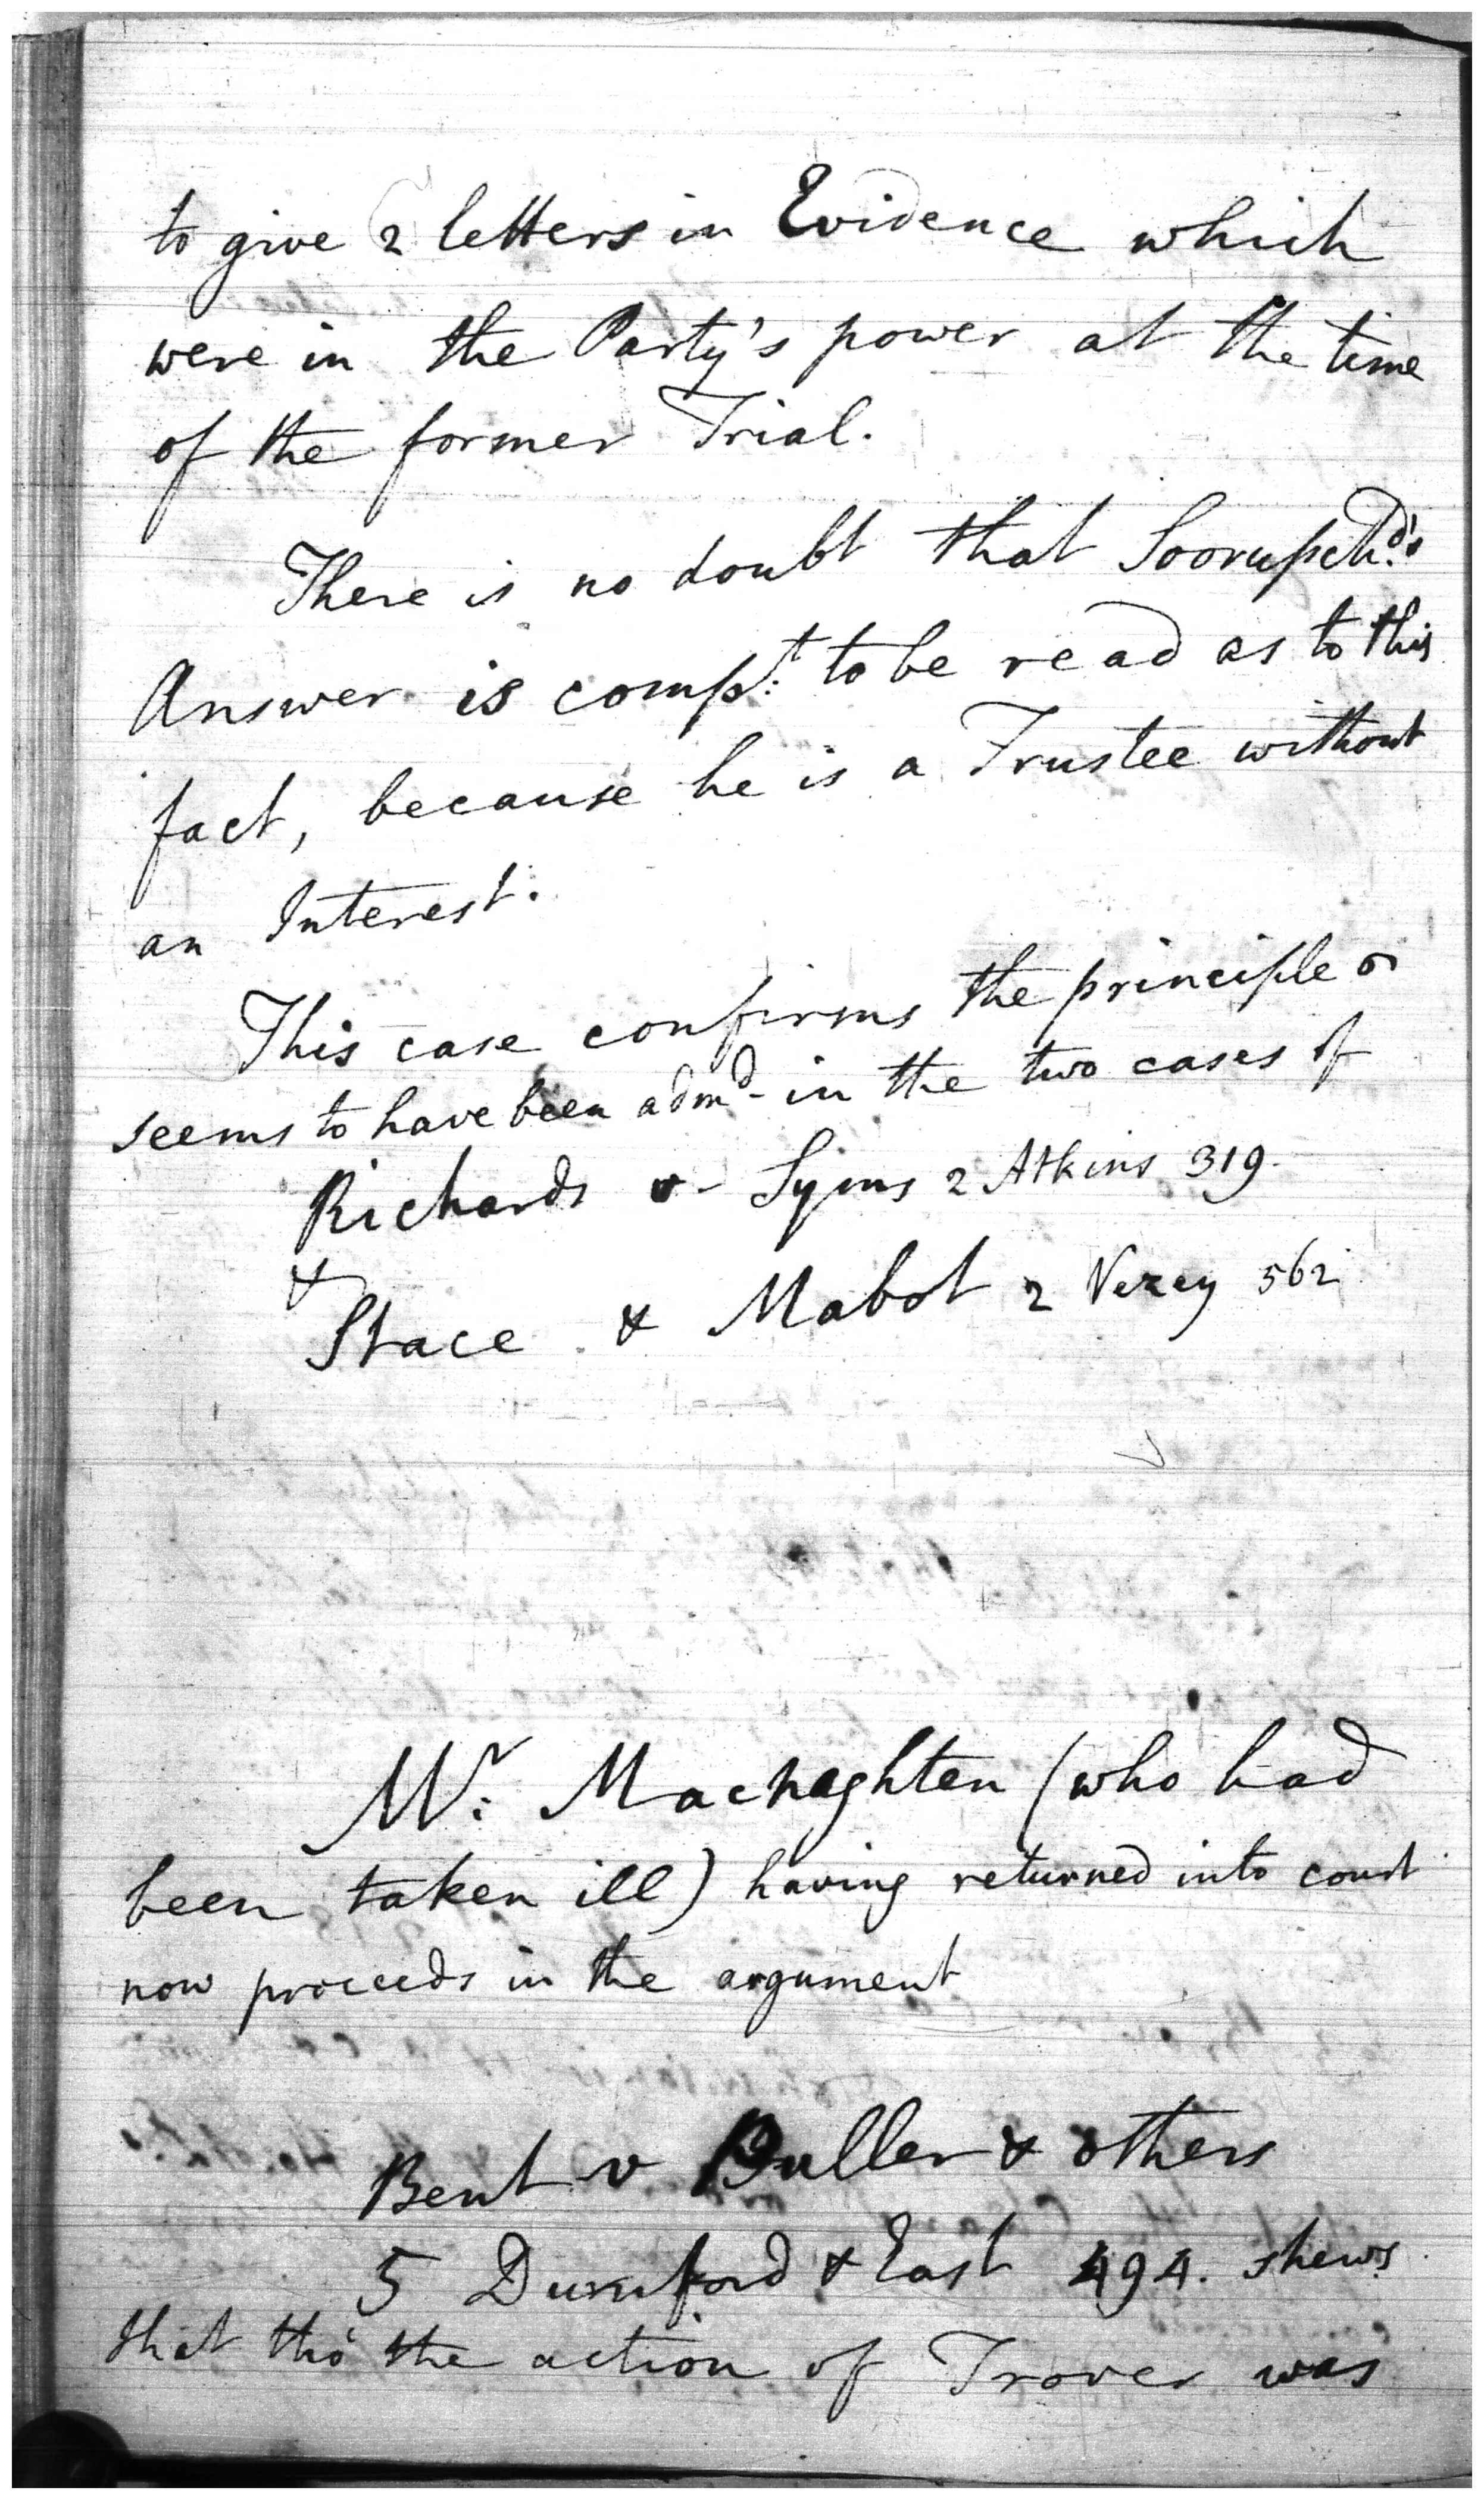 to give 2 letters in Evidence which
were in the Party's power at the time
of the former Trial.
There is no doubt that Soorupch.d's
Answer is comp.t to be read as to this
fact, because he is a Trustee without
an Interest.
This case confirms the principle &
seems to have been admd- in the two cases of
Richards v- Syms 2 Atkins 319.
&
Stace & Mabot 2 Vezey 562
Mr. Macnaghten (who had
been taken ill) having returned into court
now proceeds in the argument
Bent v Puller & others
5 Durnford & East 494. shews
that tho' the action of Trover was